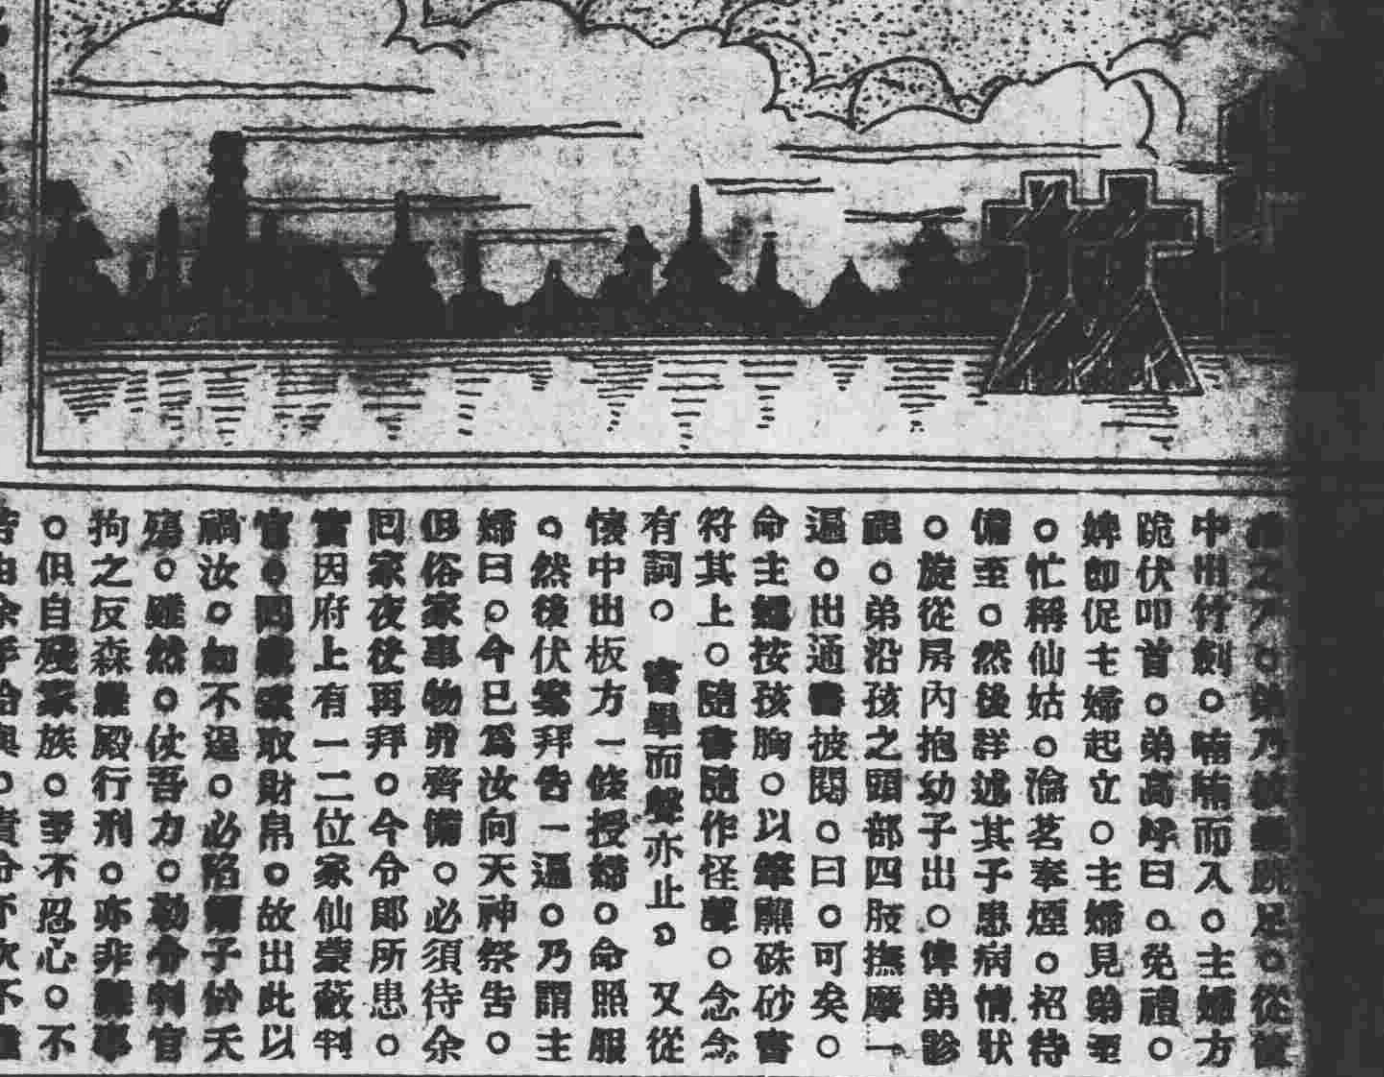 足。從
中出竹劍。喃喃而入。主婦方
跪伏叩首。弟高呼曰。免禮。
婢卽促主婦起立。主婦見弟至
。忙稱仙姑。瀹茗奉煙。招待
備至。然後詳述其子患病情狀
。旋從房內抱幼子出。俾弟診
視。弟沿孩之頭部四肢撫摩一
遍。出通書披閱。曰。可矣。
命主婦按孩胸。以筆蘸硃砂書
符其上。隨書隨作怪聲。念念
有詞。書畢而聲亦止。又從
懷中出板方一條授婦。命照服
。然後伏案拜告一遍。乃謂主
婦曰。今已爲汝向天神祭告。
但俗家事物弗齊備。必須待余
回家夜後再拜。今令郞所患。
實因府上有一二位家仙蒙蔽判
官。取財帛。故出此以
禍汝。如不逞。必陷爾子於夭
殤。雖然。仗吾力。勅令判官
拘之反森羅殿行刑。亦非難事
。但自殘家族。至不忍心。不